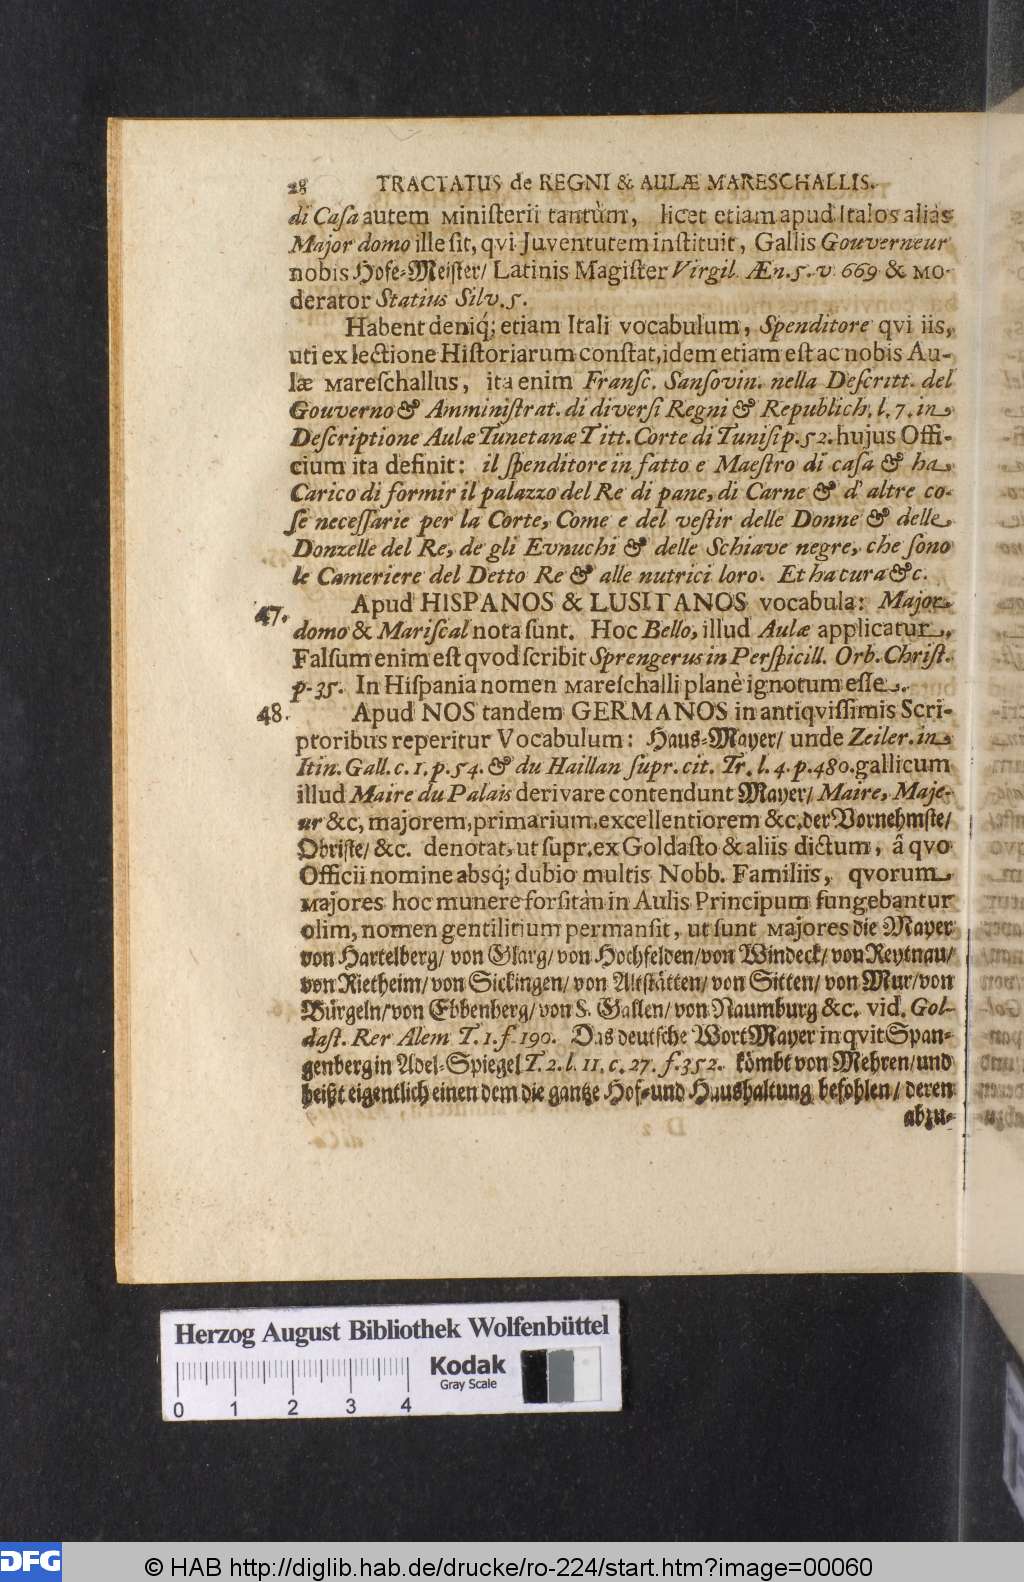 28 TRACTATUS de REGNI & AULÆ MARESCHALLIS.
di Caſa autem Miniſterii tantùm, licet etiam apud Italos aliàs
Major domo ille ſit, qvi Juventutem inſtituit, Gallis Gouverneur
nobis Hofe-Meiſter/ Latinis Magiſter Virgil. Æn. 5. v 669 & Mo-
derator Statius Silv. 5.
Habent deniq́; etiam Itali vocabulum, Spenditore qvi iis,
uti ex lectione Hiſtoriarum conſtat, idem etiam eſt ac nobis Au-
læ Mareſchallus, ita enim Franſc. Sanſovin. nella Deſcritt. del
Gouverno & Amminiſtrat. di diverſi Regni & Republich. l. 7. in
Deſcriptione Aulæ Tunetanæ Titt. Corte di Tuniſi p. 52. hujus Offi-
cium ita definit: il ſpenditore in fatto e Maeſtro di caſa & ha
Carico di formir il palazzo del Re di pane, di Carne & d' altre co-
ſe neceſſarie per la Corte, Come e del veſtir delle Donne & delle
Donzelle del Re, de gli Evnuchi & delle Schiave negre, che ſono
le Cameriere del Detto Re & alle nutrici loro. Et ha cura &c.
47. Apud HISPANOS & LUSITANOS vocabula: Major
domo & Mariſcal nota ſunt. Hoc Bello, illud Aulæ applicatur,
Falſum enim eſt qvod ſcribit Sprengerus in Perſpicill. Orb. Chriſt.
p. 35. In Hiſpania nomen Mareſchalli planè ignotum eſſe.
48. Apud NOS tandem GERMANOS in antiqviſſimis Scri-
ptoribus reperitur Vocabulum: Haus-Mayer/ unde Zeiler. in
Itin. Gall. c. 1. p. 54. & du Haillan ſupr. cit. Tr. l. 4. p. 480. gallicum
illud Maire du Palais derivare contendunt Mayer/ Maire, Maje-
ur &c, majorem, primarium, excellentiorem &c. der Vornehmſte/
Obriſte/ &c. denotat, ut ſupr. ex Goldaſto & aliis dictum, â qvo
Officii nomine absq́; dubio multis Nobb. Familiis, qvorum
Majores hoc munere forſitàn in Aulis Principum fungebantur
olim, nomen gentilitium permanſit, ut ſunt Majores die Mayer
von Hartelberg/ von Glarg/ von Hochfelden/ von Windeck/ von Reytnau/
von Rietheim/ von Sickingen/ von Altſtätten/ von Sitten/ von Mur/ von
Bürgeln/ von Ebbenberg/ von S. Gallen/ von Naumburg &c. vid. Gol-
daſt. Rer Alem T. 1. f. 190. Das deutſche Wort Mayer inqvit Span-
genberg in Adel-Spiegel T. 2. l. 11. c. 27. f. 352. kömbt von Mehren/ und
heißt eigentlich einen dem die gantze Hof- und Haushaltung befohlen/ deren
abzu-
Herzog August Bibliothek Wolfenbüttel
Kodak
Gray Scale
0 1 2 3 4
DFG © HAB http://diglib.hab.de/drucke/ro-224/start.htm?image=00060